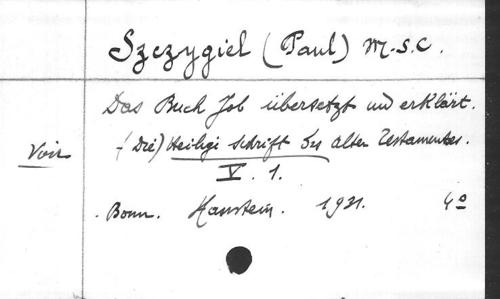 Szczygiel (Paul) M.S.C.
Das Buch Job übersetzt und erklärt.
Voir (Die) Heilige Schrift des alten Testamentes.
V. 1.
Bonn. Hanstein. 1931. 4º